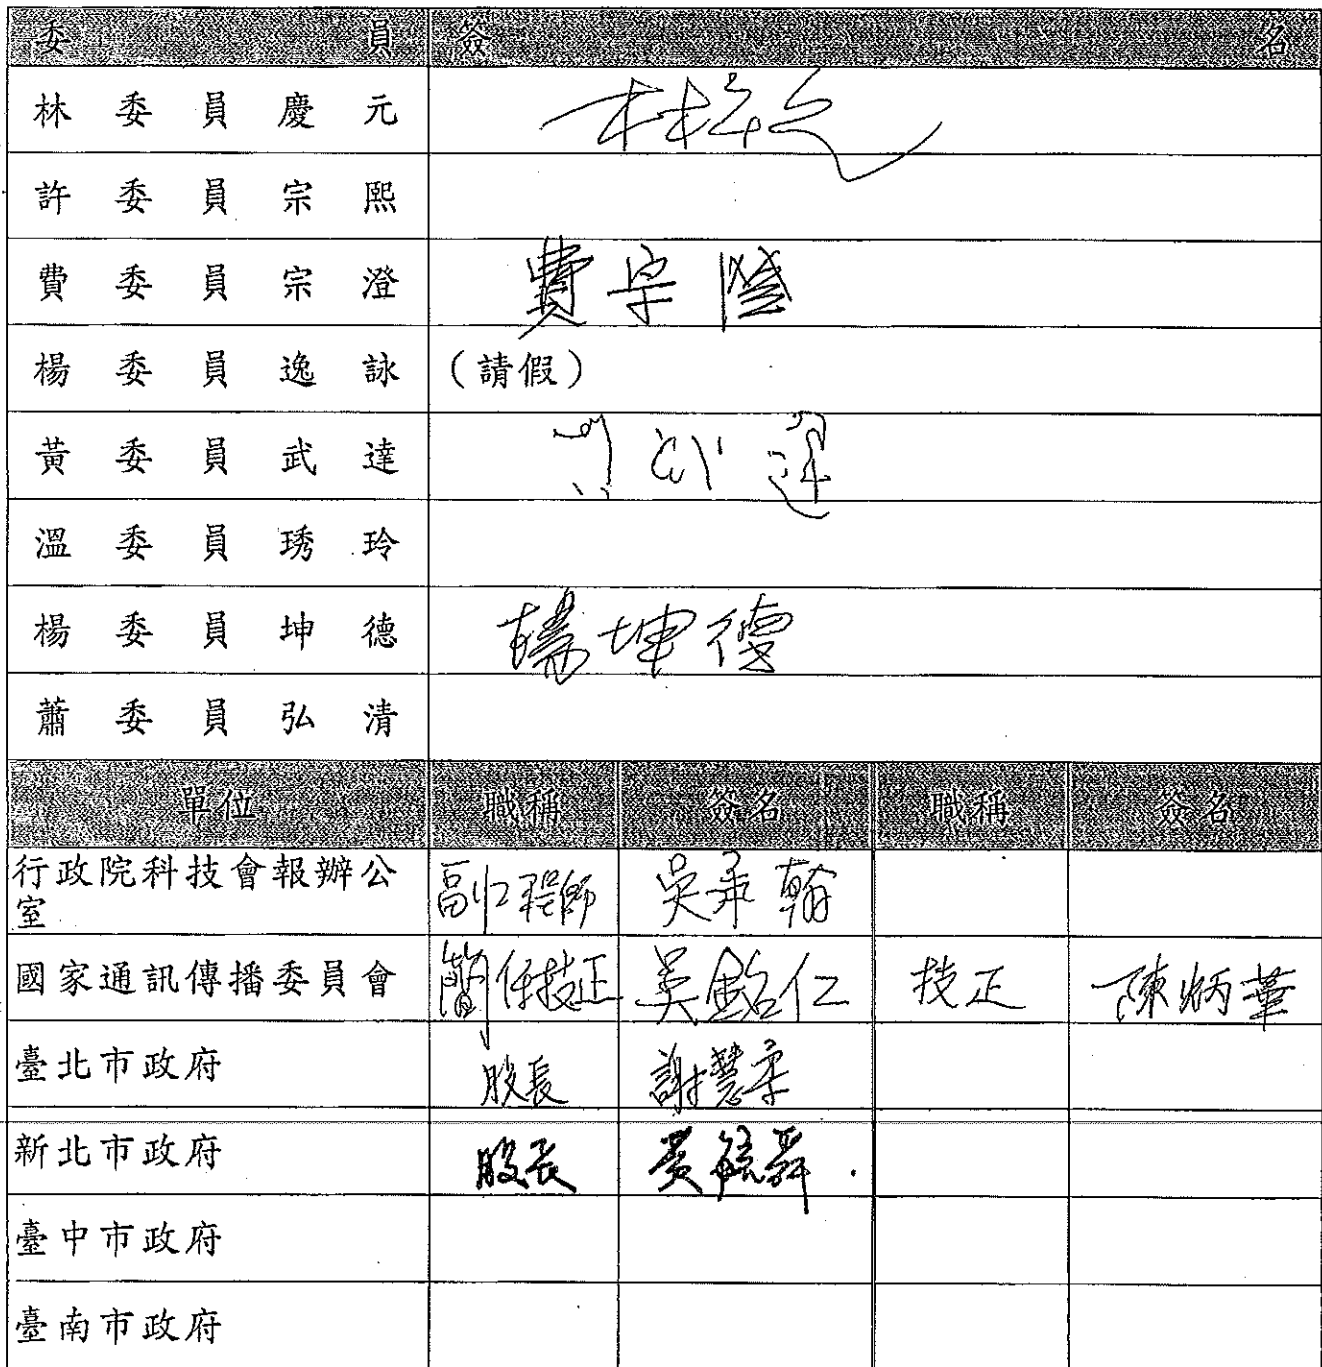 委員 簽名
林委員慶元 林慶元
許委員宗熙
費委員宗澄 費宗澄
楊委員逸詠 (請假)
黃委員武達
溫委員琇玲
楊委員坤德 楊坤德
蕭委員弘清
單位 職稱 簽名 職稱 簽名
行政院科技會報辦公
室 副工程師 吳承翰
國家通訊傳播委員會 簡任技正 吳銘仁 技正 陳炳華
臺北市政府 股長 謝慧柔
新北市政府 股長 黃毓舜
臺中市政府
臺南市政府